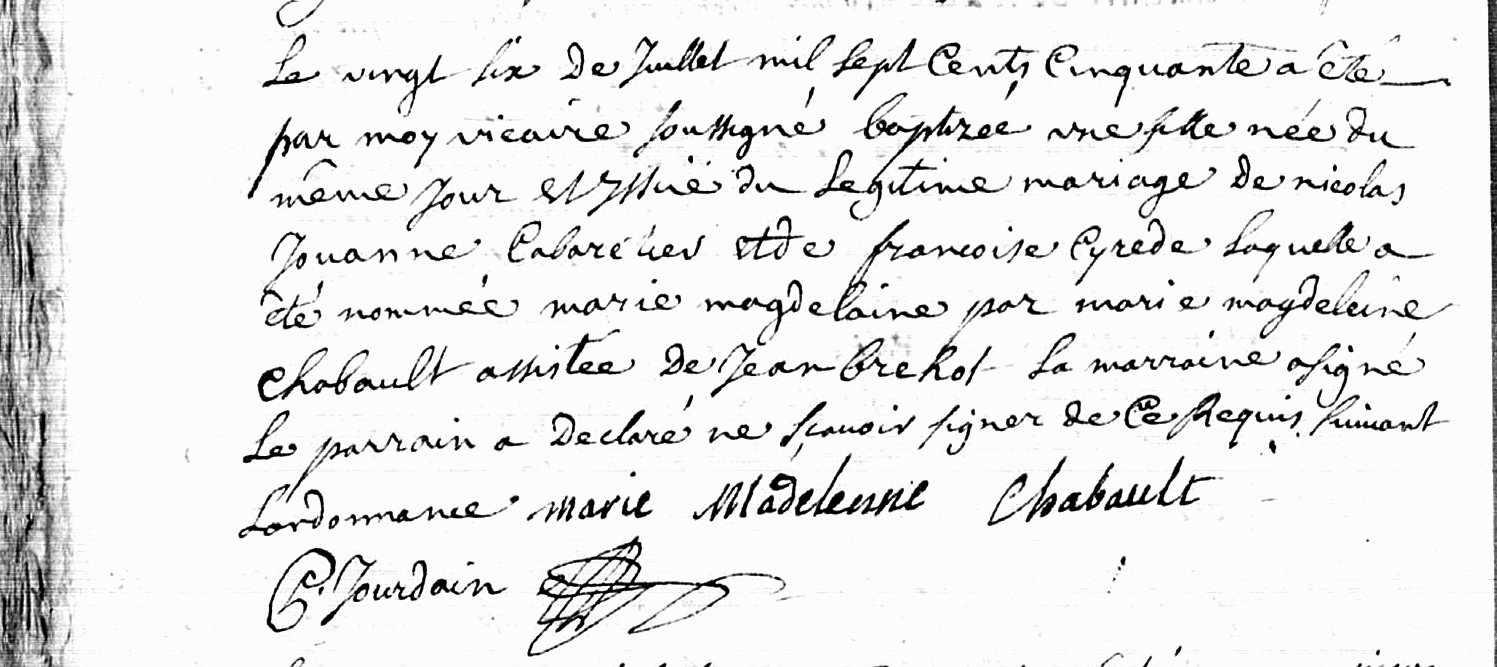 Le vingt six De Juillet mil Sept Cents Cinquante a été
par moy vicaire soussigné baptizée une fille née du
même Jour et Issüe du Legitime mariage De nicolas
Jouanne Cabaretier et de francoise Cyrede Laquelle a
été nommée marie magdelaine par marie magdeleine
Chabault assistée De Jean brehot La marraine a signé
Le parrain a Declaré ne sçavoir signer de Ce Requis, suivant
Lordonnance marie Madeleine Chabault
C. Jourdain